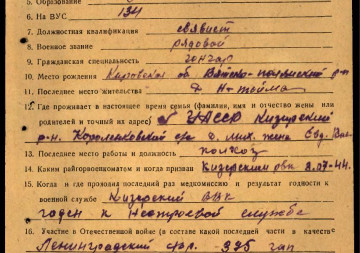 5. Образование
6. На ВУС 134
7. Должностная квалификация связист
8. Военное звание рядовой
9. Гражданская специальность
10. Место рождения Кировская об. Вятско-полянский р-н
11. Последнее место жительства д. Н-тойма
12. Где проживает в настоящее время семья (фамилия, имя и отчество жены или
родителей и точный их адрес) УАССР Кизнерский
р-н. Короленковский с/с д. жена
13. Последнее место работы и должность колхоз
14. Каким райгорвоенкоматом и когда призван Кизнерским рвк 2.07-44.
15. Когда и где проходил последний раз медкомиссию и результат годности к
военной службе Кизнерский РВК
годен к Нестроевой службе
16. Участие в Отечественной войне (в составе какой последней части в качестве
Ленинградский зап